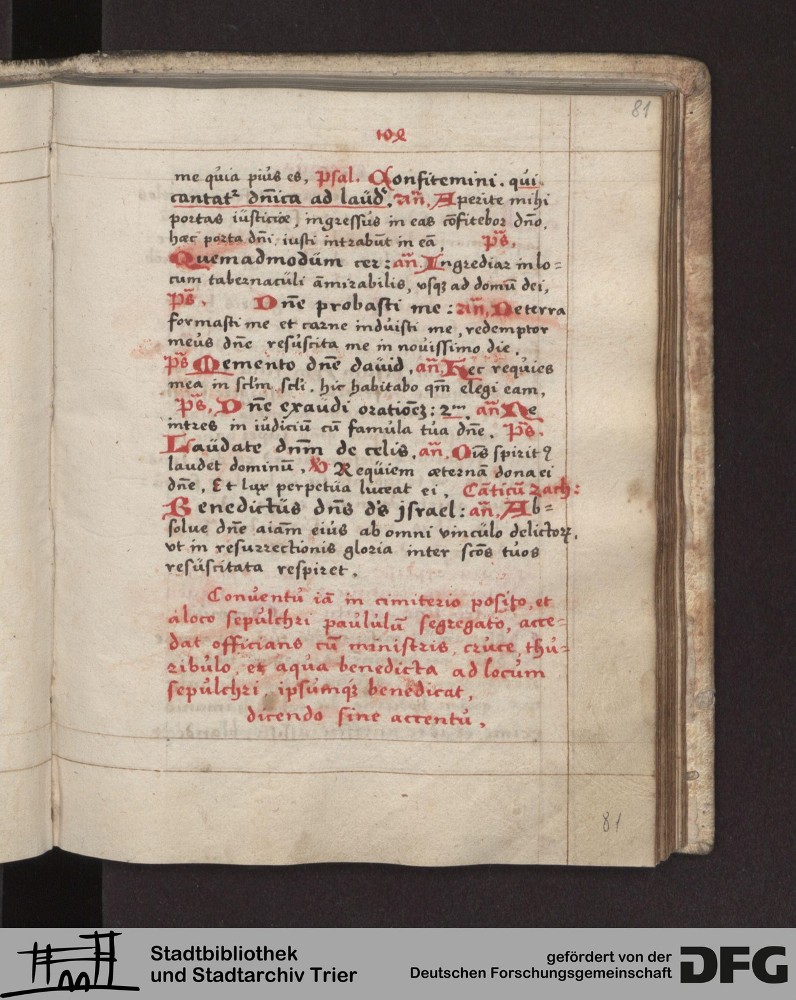 81
109
me quia pius es, Psal. Confitemini. qui
cantat² dn̄ica ad laud'. an̄. Aperite mihi
portas iusticiæ, ingressus in eas cōfitebor dn̄o.
hæc porta dn̄i, iusti intrabūt in eā, ps̄.
Quemadmodum cer: an̄. Ingrediar in lo=
cum tabernaculi āmirabilis, vsqꝫ ad domū dei,
ps̄. Dn̄e probasti me: an̄. De terra
formasti me et carne induisti me, redemptor
meus dn̄e resuscita me in nouissimo die.
ps̄ Memento dn̄e dauid. an̄. Hec requies
mea in sc̄lm sc̄li. hic habitabo qm̄ elegi eam,
ps̄. Dn̄e exaudi orationeꝫ: 2ᵐ. an̄ Ne
intres in iudiciū cū famula tua dn̄e. ps̄.
Laudate dn̄m de celis. an̄. Ois̄ spirit9
laudet dominū, ℣ Requiem æternā dona ei
dn̄e, Et lux perpetua luceat ei, Cāticū zach:
Benedictus dn̄s d's jsrael: an̄. Ab=
solue dn̄e aiam̄ eius ab omni vinculo delictoꝝ,
vt in resurrectionis gloria inter sc̄os tuos
resuscitata respiret.
Conuentu iā in cimiterio posito, et
a loco sepulchri paululū segregato, acce=
dat officians cū ministris, cruce, thu=
ribulo, et aqua benedicta ad locum
sepulchri, ipsumqꝫ benedicat,
dicendo sine accentu.
81
Stadtbibliothek
und Stadtarchiv Trier
gefördert von der
Deutschen Forschungsgemeinschaft
DFG